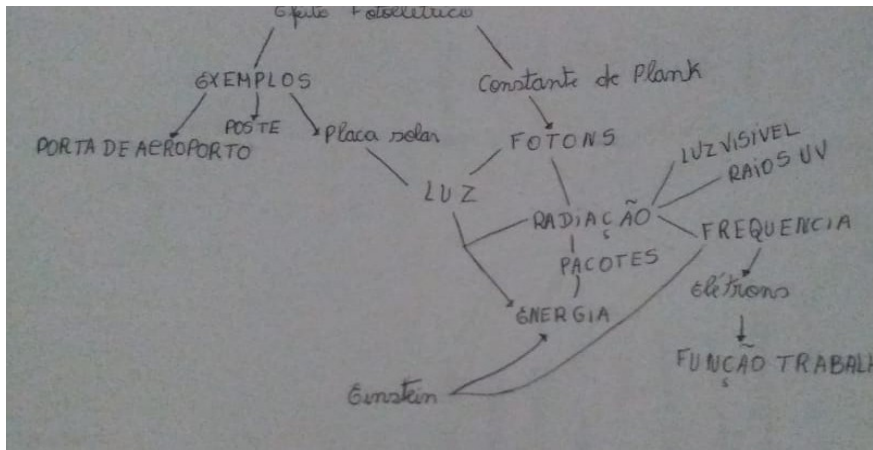 Efeito Fotoelétrico
EXEMPLOS
Constante de Plank
PORTA DE AEROPORTO
POSTE
Placa solar
FOTONS
LUZ VISIVEL
RAIOS UV
LUZ
RADIAÇÃO
FREQUENCIA
PACOTES
Elétrons
ENERGIA
FUNÇÃO TRABALH
Einstein